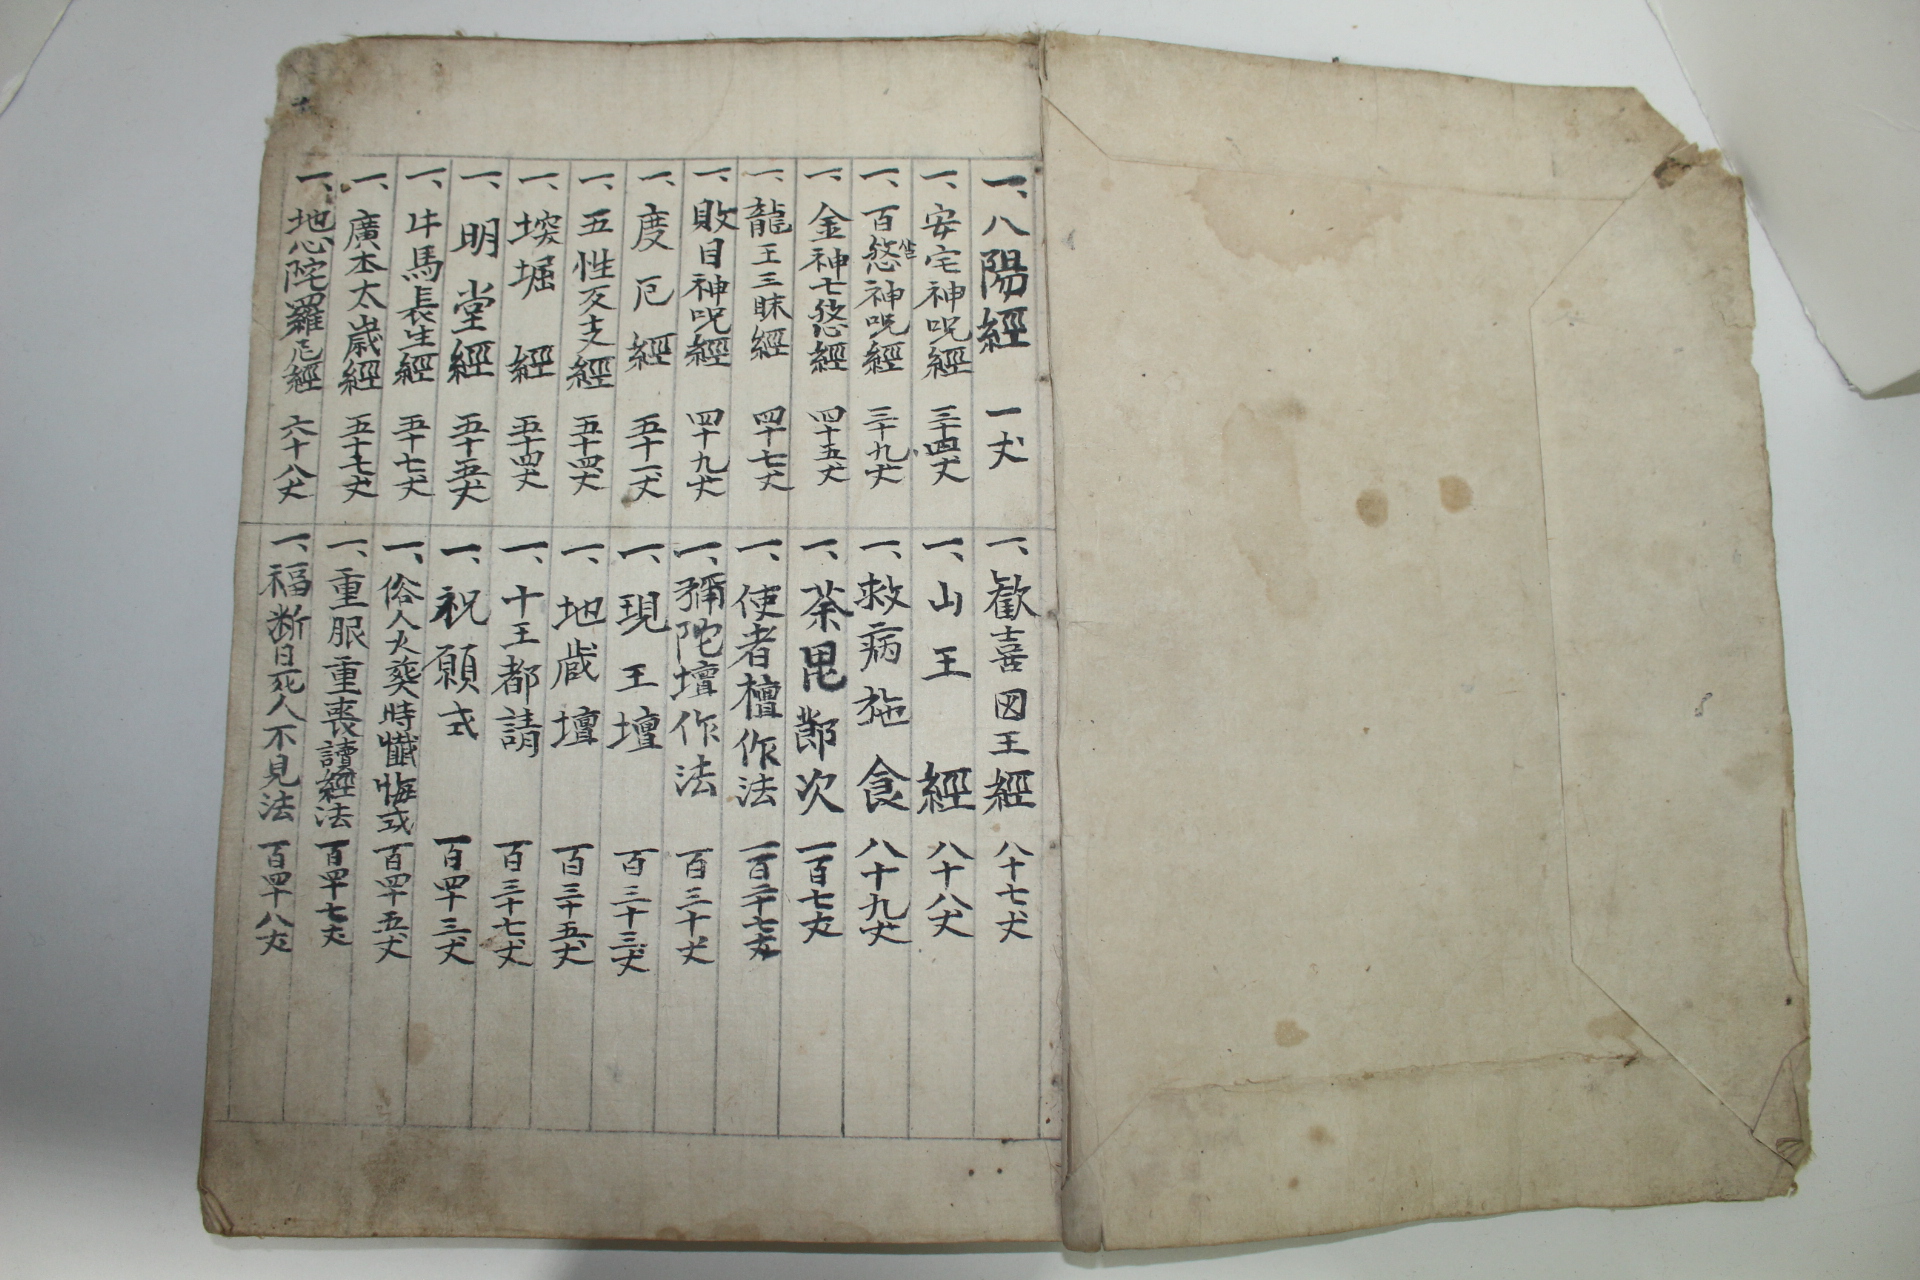 一、八陽經 一丈
一、安宅神呪經 三十四丈
一、百慾神呪經 三十九丈
一、金神七慾經 四十五丈
一、龍王三昧經 四十七丈
一、敗目神呪經 四十九丈
一、度厄經 五十一丈
一、五性反支經 五十四丈
一、堗堀經 五十四丈
一、明堂經 五十五丈
一、牛馬長生經 五十七丈
一、廣本太歲經 五十七丈
一、地心陀羅尼經 六十八丈
一、歡喜囡王經 八十七丈
一、山王經 八十八丈
一、救病施食 八十九丈
一、茶毘節次 一百七丈
一、使者檀作法 一百二十七丈
一、彌陀壇作法 百三十丈
一、現王壇 百三十三丈
一、地歲壇 百三十五丈
一、十王都請 百三十七丈
一、祝願式 百四十三丈
一、俗人火葬時懺悔式 百四十五丈
一、重服重喪讀經法 百四十七丈
一、福断日死人不見法 百四十八丈